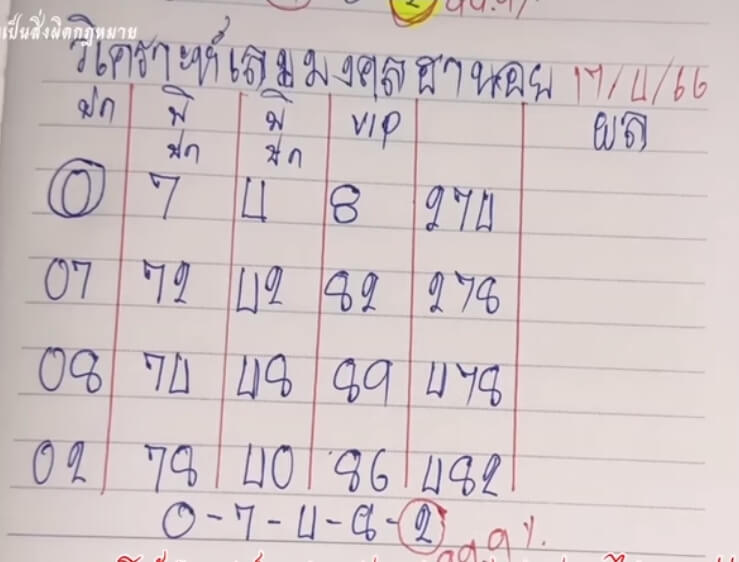 2 99.9%
เป็นสิ่งผิดกฎหมาย
วิเคราะห์เลขมงคลฮานอย 17/4/66
ปก พิ พิ VIP ผล
ปก ปก
0 7 4 8 274
07 72 42 82 278
08 74 48 89 478
02 78 40 86 482
0-7-4-8-2 99.9%